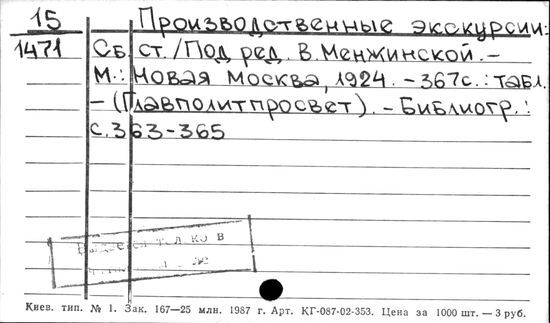 15
1471
Производственные экскурсии:
Сб. ст./Под ред. В. Менжинской. –
М.: Новая Москва, 1924. – 367с.: табл.
– (Главполитпросвет). – Библиогр.:
с. 363-365
только в
Киев. тип. № 1. Зак. 167—25 млн. 1987 г. Арт. КГ-087-02-353. Цена за 1000 шт. — 3 руб.